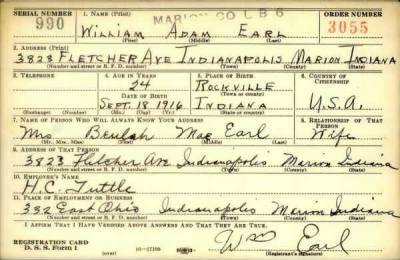 SERIAL NUMBER 1. NAME (Print) MARION CO L B 6 ORDER NUMBER
990 WILLIAM ADAM EARL 3055
(First) (Middle) (Last)
2. ADDRESS (Print)
3823 FLETCHER AVE INDIANAPOLIS MARION INDIANA
(Number and street or R. F. D. number) (Town) (County) (State)
3. TELEPHONE 4. AGE IN YEARS 5. PLACE OF BIRTH 6. COUNTRY OF CITIZENSHIP
24 ROCKVILLE
DATE OF BIRTH (Town or county)
SEPT. 18, 1916 INDIANA U.S.A.
(Exchange) (Number) (Mo.) (Day) (Yr.) (State or country)
7. NAME OF PERSON WHO WILL ALWAYS KNOW YOUR ADDRESS 8. RELATIONSHIP OF THAT PERSON
Mrs. Beulah Mae Earl Wife
(Mr., Mrs., Miss) (First) (Middle) (Last)
9. ADDRESS OF THAT PERSON
3823 Fletcher Ave Indianapolis Marion Indiana
(Number and street or R. F. D. number) (Town) (County) (State)
10. EMPLOYER'S NAME
H.C. Tuttle
11. PLACE OF EMPLOYMENT OR BUSINESS
332 East Ohio Indianapolis Marion Indiana
(Number and street or R. F. D. number) (Town) (County) (State)
I AFFIRM THAT I HAVE VERIFIED ABOVE ANSWERS AND THAT THEY ARE TRUE.
REGISTRATION CARD
D. S. S. Form 1 (over) Wm Earl
(Registrant's signature)